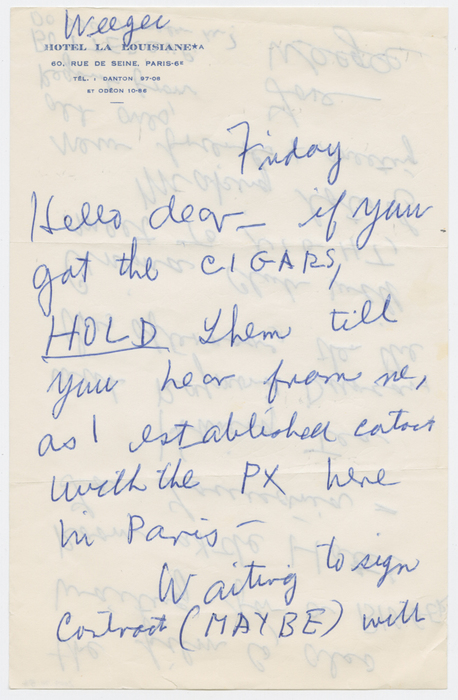 Weegee
HOTEL LA LOUISIANE★A
60, RUE DE SEINE, PARIS-6E
TÉL. : DANTON 97-08
ET ODÉON 10-66
Friday
Hello dear— if you
got the CIGARS,
HOLD them till
you hear from me,
as I established contact
with the PX here
in Paris—
Waiting to sign
contract (MAYBE) with